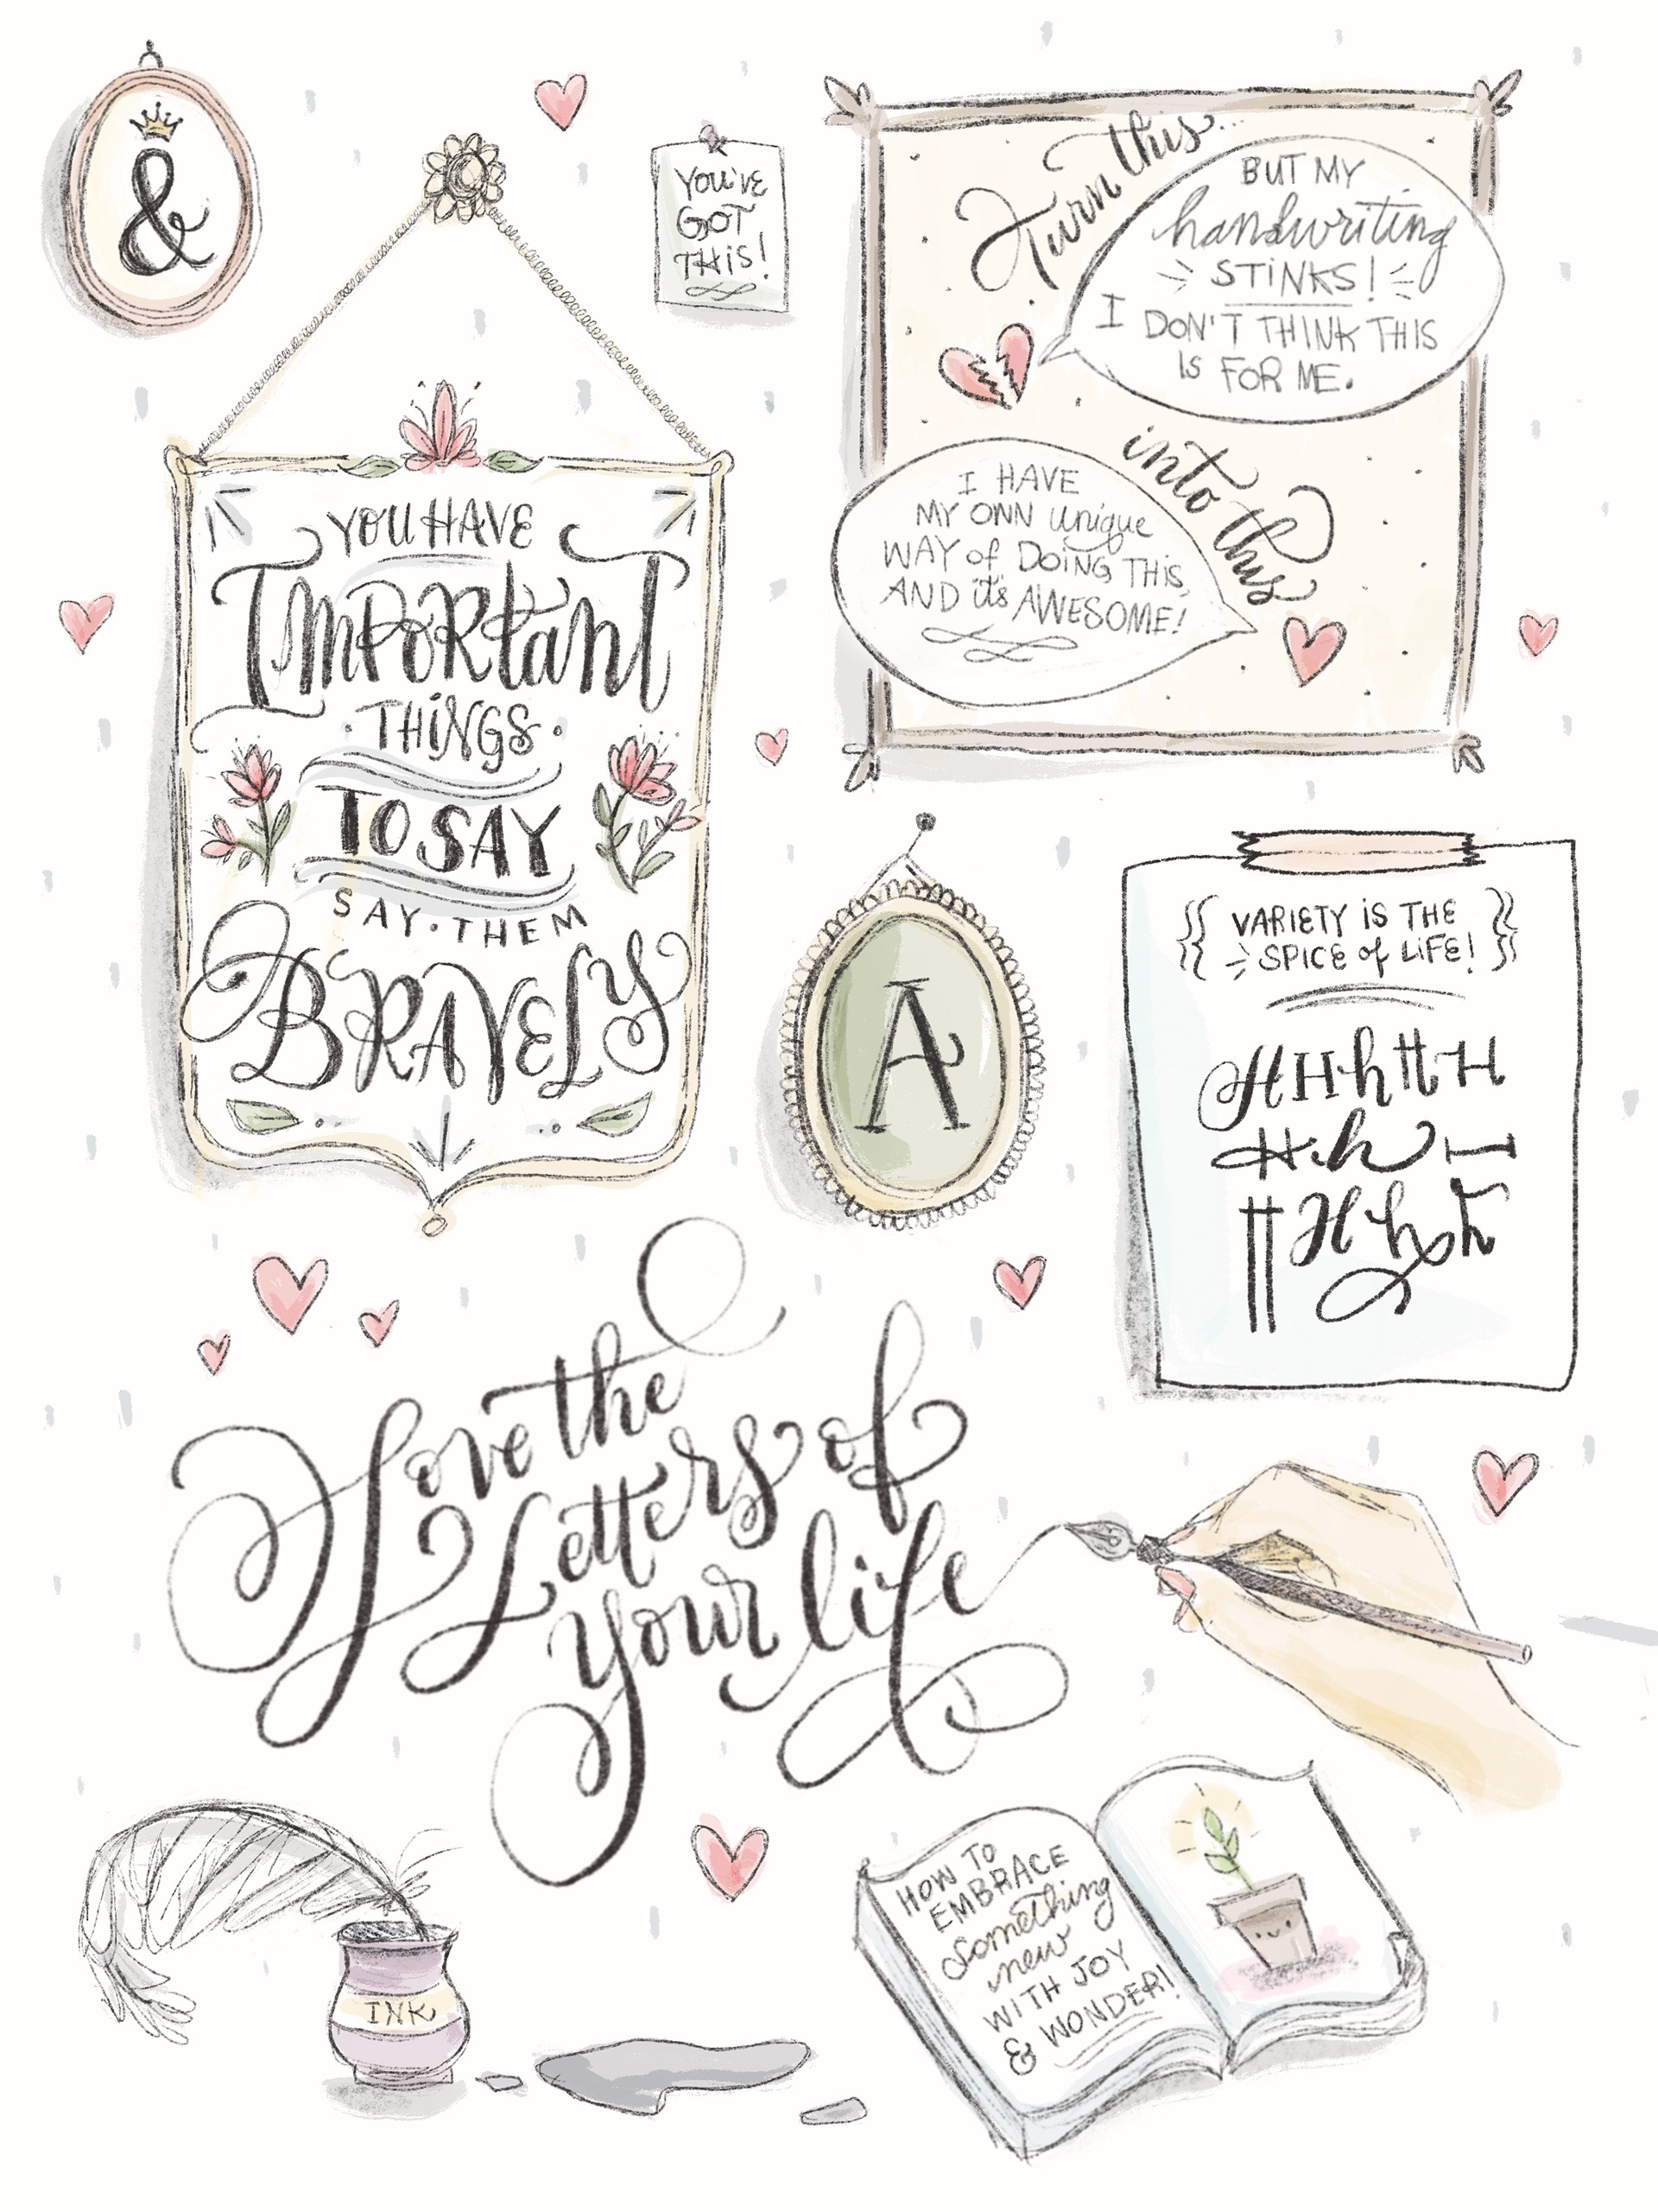 &
YOU'VE
GOT
THiS!
Turn this...
BUT MY
handwriting
STiNKS!
I DON'T THINK THIS
IS FOR ME.
into this
I HAVE
MY OWN unique
WAY of DOiNG THiS,
AND it's AWESOME!
YOU HAVE
ImPoRtant
·THiNGS·
TO SAY
SAY·THEM
BRAVELY
A
{{ VARiETY iS THE
SPiCE of LiFE! }}
H H h H H
H h H
H H h h
Love the
Letters of
your life
INK
HOW TO
EMBRACE
Something
new
WITH JOY
& WONDER!